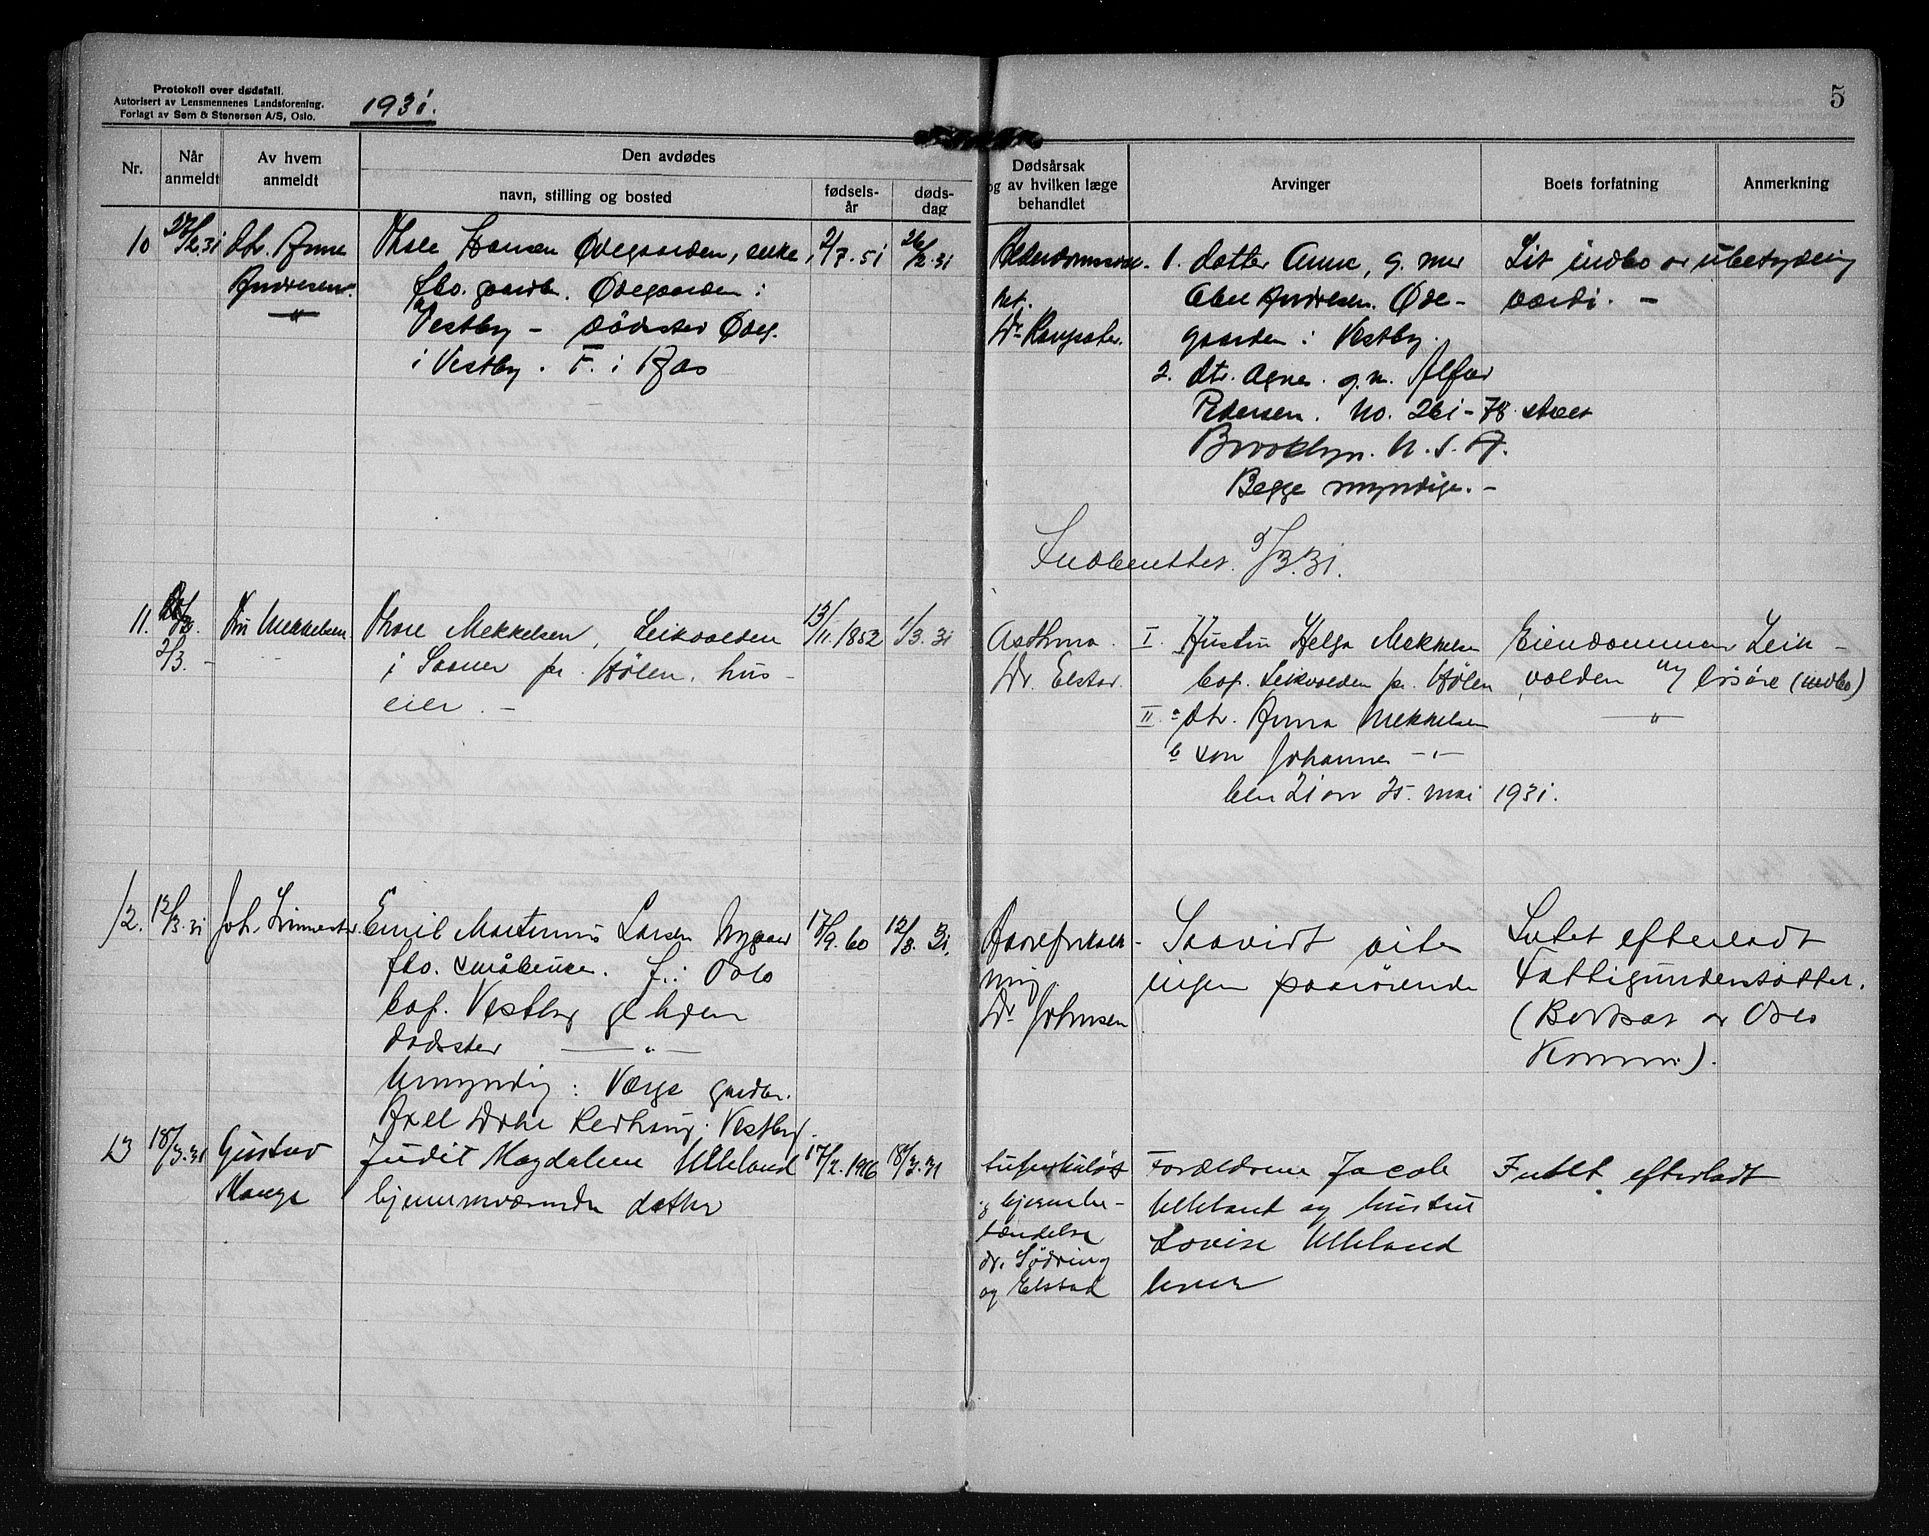 Protokoll over dødsfall.
Autorisert av Lensmennenes Landsforening.
Forlagt av Sem & Stenersen A/S, Oslo.
1931.
5
Nr.
Når anmeldt
Av hvem anmeldt
Den avdødes
navn, stilling og bosted
fødsels-år
døds-dag
Dødsårsak og av hvilken læge behandlet
Arvinger
Boets forfatning
Anmerkning
10
27/2.31
dtr. Anne
Andresen
"
Hansen Ødegaarden, enke
fho. gaardb. Ødegaarden i
Vestby – dødssted Ødeg.
i Vestby. F. i Aas
2/7.51
26/2.31
1. datter Anne, g. med
Andresen. Øde-
gaarden i Vestby.
2. dtr. Agnes. g.m. Alfred
Pedersen. No. 261-78 street
Brooklyn. U.S.A.
Begge myndige. –
Lit indbo av ubetydelig
værdi. –
Indberettet 5/3.31.
11.
2/3. –
Fru Mekkelsen
Thore Mekkelsen, Leikvolden
i Saaner pr. Hølen, hus-
eier. –
13/11.1852
1/3.31
Asthma.
Dr. Elstad.
I. Hustru Helga Mekkelsen
bof. Leikvolden pr. Hølen
II. a dtr. Anna Mekkelsen
b søn Johannes – " –
blir 21 aar 25. mai 1931.
Eiendommen Leik-
volden og løsøre (indbo)
"
12.
12/3.31
Joh.
Emil Martinius Larsen Nygaard
fho. småbruker. f. i Oslo
bof. Vestby g.lehjem
Dødssted — " —
Umyndig: Værge gardbr.
Axel Vestby.
17/9.60
12/3.31.
Aareforkalk-
ning
Dr Johnsen
Saavidt vites
ingen paarørende
Intet efterladt
Fattigunderstøttet.
(Bortsat av Oslo
Komm.).
13
18/3.31
Gustav
Mange
Judit Magdalene Ulleland
hjemmeværende datter
17/2.1916
18/3.31
tuberkuløs
hjernebe-
tændelse
dr. Sødring
og Elstad
Forældrene Jacob
Ulleland og hustru
Lovise Ulleland
lever
Intet efterladt